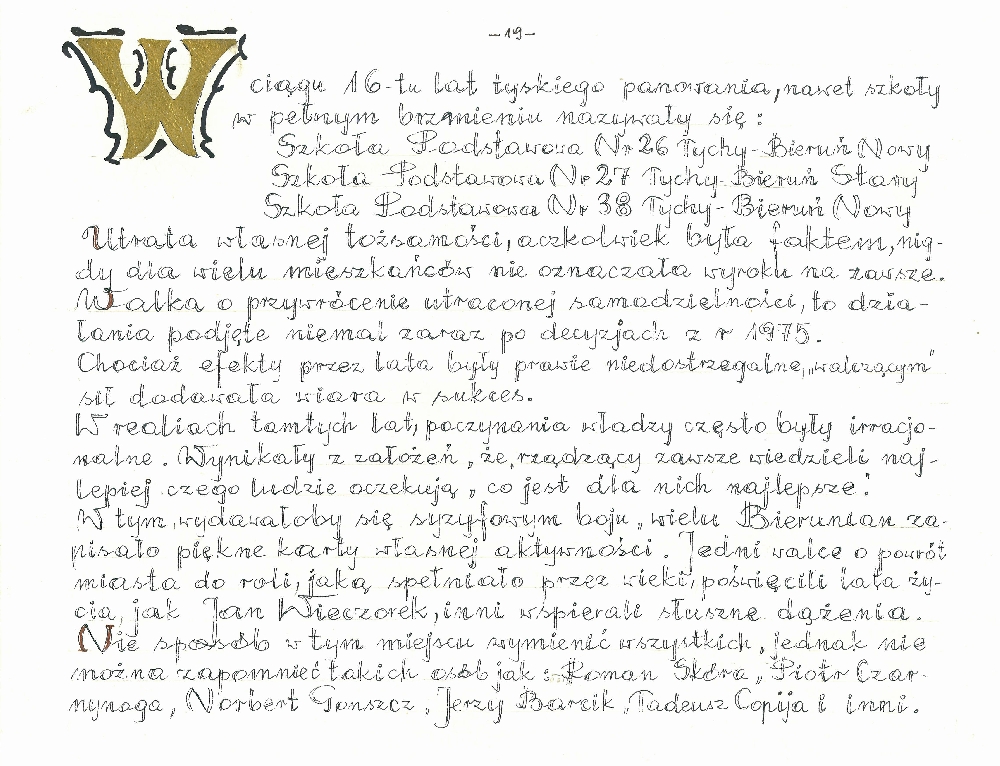 -19-
W ciągu 16-tu lat tyskiego panowania, nawet szkoły
w pełnym brzmieniu nazywały się:
Szkoła Podstawowa Nr 26 Tychy-Bieruń Nowy
Szkoła Podstawowa Nr 27 Tychy-Bieruń Stary
Szkoła Podstawowa Nr 38 Tychy-Bieruń Nowy
Utrata własnej tożsamości, aczkolwiek była faktem, nig-
dy dla wielu mieszkańców nie oznaczała wyroku na zawsze.
Walka o przywrócenie utraconej samodzielności, to dzia-
łania podjęte niemal zaraz po decyzjach z r 1975.
Chociaż efekty przez lata były prawie niedostrzegalne, „walczącym"
sił dodawała wiara w sukces.
W realiach tamtych lat, poczynania władzy często były irracjo-
nalne. Wynikały z założeń „że, rządzący zawsze wiedzieli naj-
lepiej czego ludzie oczekują „co jest dla nich najlepsze".
W tym, wydawałoby się syzyfowym boju, wielu Bierunian za-
pisało piękne karty własnej aktywności. Jedni walce o powrót
miasta do roli, jaką spełniało przez wieki, poświęcili lata ży-
cia, jak Jan Wieczorek, inni wspierali słuszne dążenia.
Nie sposób w tym miejscu wymienić wszystkich, jednak nie
można zapomnieć takich osób jak: Roman Skóra, Piotr Czar-
nynoga, Norbert Gonszcz, Jerzy Barcik, Tadeusz Copija i inni.